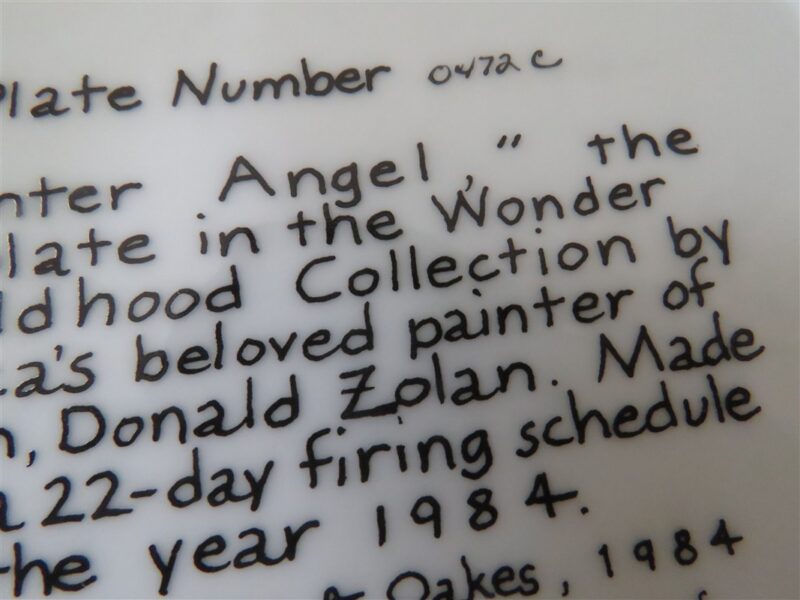 Plate Number 0472C
nter Angel," the
late in the Wonder
dhood Collection by
a's beloved painter of
n, Donald Zolan. Made
a 22-day firing schedule
the year 1984.
Oakes, 1984